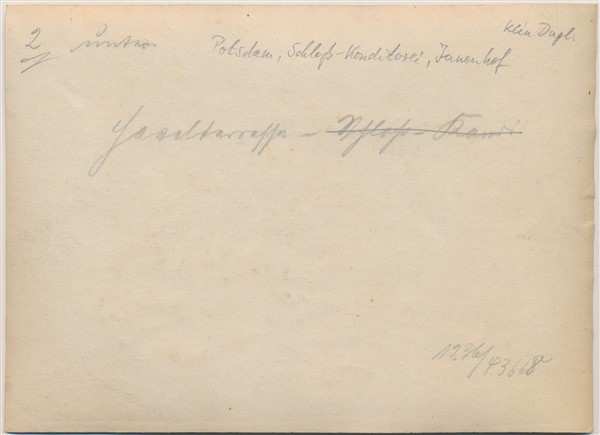 2 unten Potsdam, Schloß-Konditorei, Innenhof
kein Dupl.
Havelterrasse - Schloß-Kondi
1936/43668